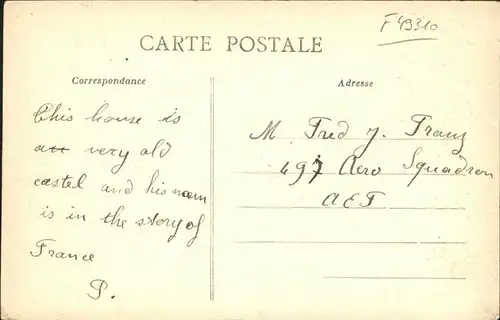 F 49310
CARTE POSTALE
Correspondance
Adresse
This house is
a very old
castel and his nam
is in the story of
France
P.
M. Fred J. Franz
497 Aero Squadron
AEF